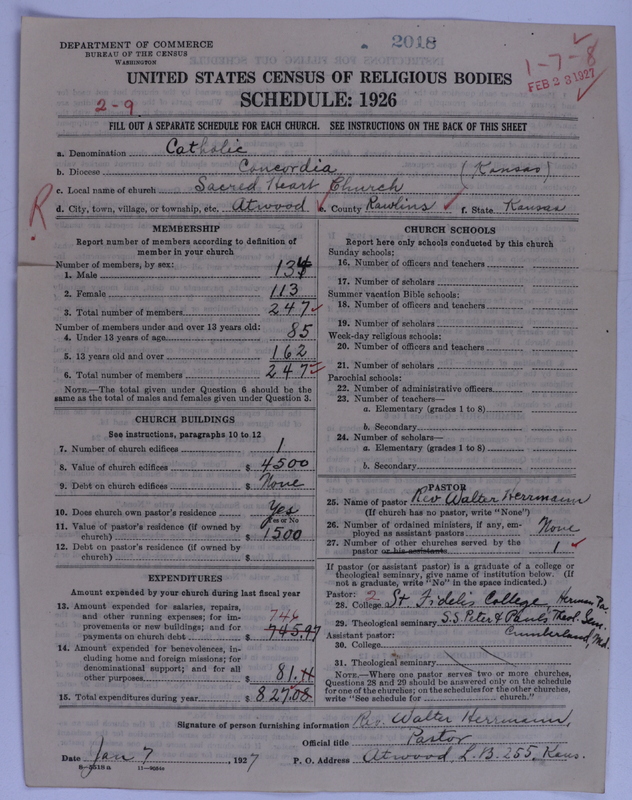 DEPARTMENT OF COMMERCE
BUREAU OF THE CENSUS
WASHINGTON
2018
1-7-8
FEB 23 1927
UNITED STATES CENSUS OF RELIGIOUS BODIES
SCHEDULE: 1926
2-9
FILL OUT A SEPARATE SCHEDULE FOR EACH CHURCH. SEE INSTRUCTIONS ON THE BACK OF THIS SHEET
a. Denomination Catholic
b. Diocese Concordia (Kansas)
c. Local name of church Sacred Heart Church
R
d. City, town, village, or township, etc. Atwood e. County Rawlins f. State Kansas
MEMBERSHIP
Report number of members according to definition of
member in your church
Number of members, by sex:
1. Male 134
2. Female 113
3. Total number of members 247
Number of members under and over 13 years old:
4. Under 13 years of age 85
5. 13 years old and over 162
6. Total number of members 247
NOTE.—The total given under Question 6 should be
same as the total of males and females given under Question 3.
CHURCH BUILDINGS
See instructions, paragraphs 10 to 12
7. Number of church edifices 1
8. Value of church edifices $ 4500
9. Debt on church edifices $ None
10. Does church own pastor's residence Yes
Yes or No
11. Value of pastor's residence (if owned by
church) $ 1500
12. Debt on pastor's residence (if owned by
church) $
EXPENDITURES
Amount expended by your church during last fiscal year
13. Amount expended for salaries, repairs,
and other running expenses; for im-
provements or new buildings; and for
payments on church debt $ 745.97
746
14. Amount expended for benevolences, in-
cluding home and foreign missions; for
denominational support; and for all
other purposes $ 81.11
15. Total expenditures during year $ 827.08
CHURCH SCHOOLS
Report here only schools conducted by this church
Sunday schools:
16. Number of officers and teachers
17. Number of scholars
Summer vacation Bible schools:
18. Number of officers and teachers
19. Number of scholars
Week-day religious schools:
20. Number of officers and teachers
21. Number of scholars
Parochial schools:
22. Number of administrative officers
23. Number of teachers—
a. Elementary (grades 1 to 8)
b. Secondary
24. Number of scholars—
a. Elementary (grades 1 to 8)
b. Secondary
PASTOR
25. Name of pastor Rev Walter Herrmann
(If church has no pastor, write "None")
26. Number of ordained ministers, if any, em-
ployed as assistant pastors None
27. Number of other churches served by the
pastor or his assistants 1
If pastor (or assistant pastor) is a graduate of a college or
theological seminary, give name of institution below. (If
not a graduate, write "No" in the space indicated.)
Pastor: 2
28. College St. Fidelis College, Herman Pa.
29. Theological seminary S.S. Peter & Pauls Theol. Sem.
Cumberland, Md.
Assistant pastor:
30. College
31. Theological seminary
NOTE.—Where one pastor serves two or more churches,
Questions 28 and 29 should be answered only on the schedule
for one of the churches; on the schedules for the other churches,
write "See schedule for church."
Signature of person furnishing information Rev. Walter Herrmann,
Official title Pastor
Date Jan 7, 1927 P. O. Address Atwood, L.B. 255, Kans.
8—5518a 11—9034a